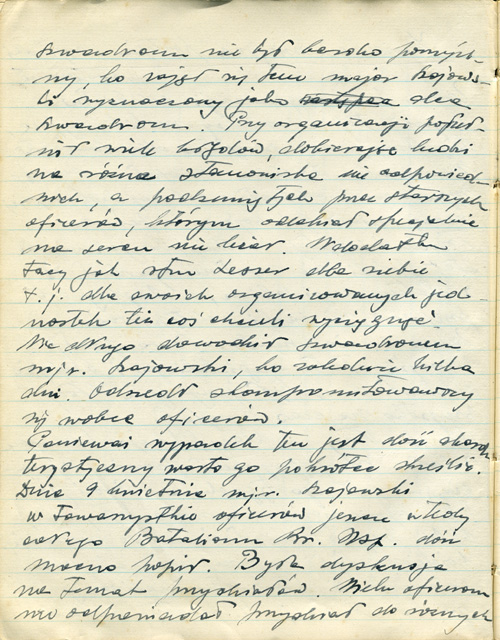 szwadronu nie był bardzo pomyśl-
ny, bo zajął się tem major Szajows-
ki wyznaczony jako zastępca dcca
szwadronu. Przy organizacji popeł-
nił wiele błędów, dobierając ludzi
na różne stanowiska nie odpowied-
nich, a podsuniętych przez starszych
oficerów, którym oddział specjalnie
na sercu nie leżał. W dodatku
tacy jak rtm Lesser dla siebie
t. j. dla swoich organizowanych jed-
nostek też coś chcieli wyciągnąć.
Nie długo dowodził szwadronem
mjr. Szajowski, bo zaledwie kilka
dni. Odszedł skompromitowawszy
się wobec oficerów.
Ponieważ wypadek ten jest dość charak
terystyczny warto go pokrótce skreślić.
Dnia 9 kwietnia mjr. Szajowski
w towarzystwie oficerów jeszcze wtedy
całego Batalionu dość
mocno popił. Była dyskusja
na temat przydziałów. Wielu oficerom
nie odpowiadał przydział do różnych